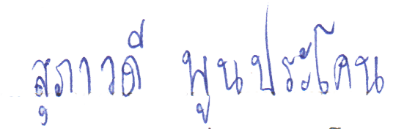 สุภาวดี พูนประโคน